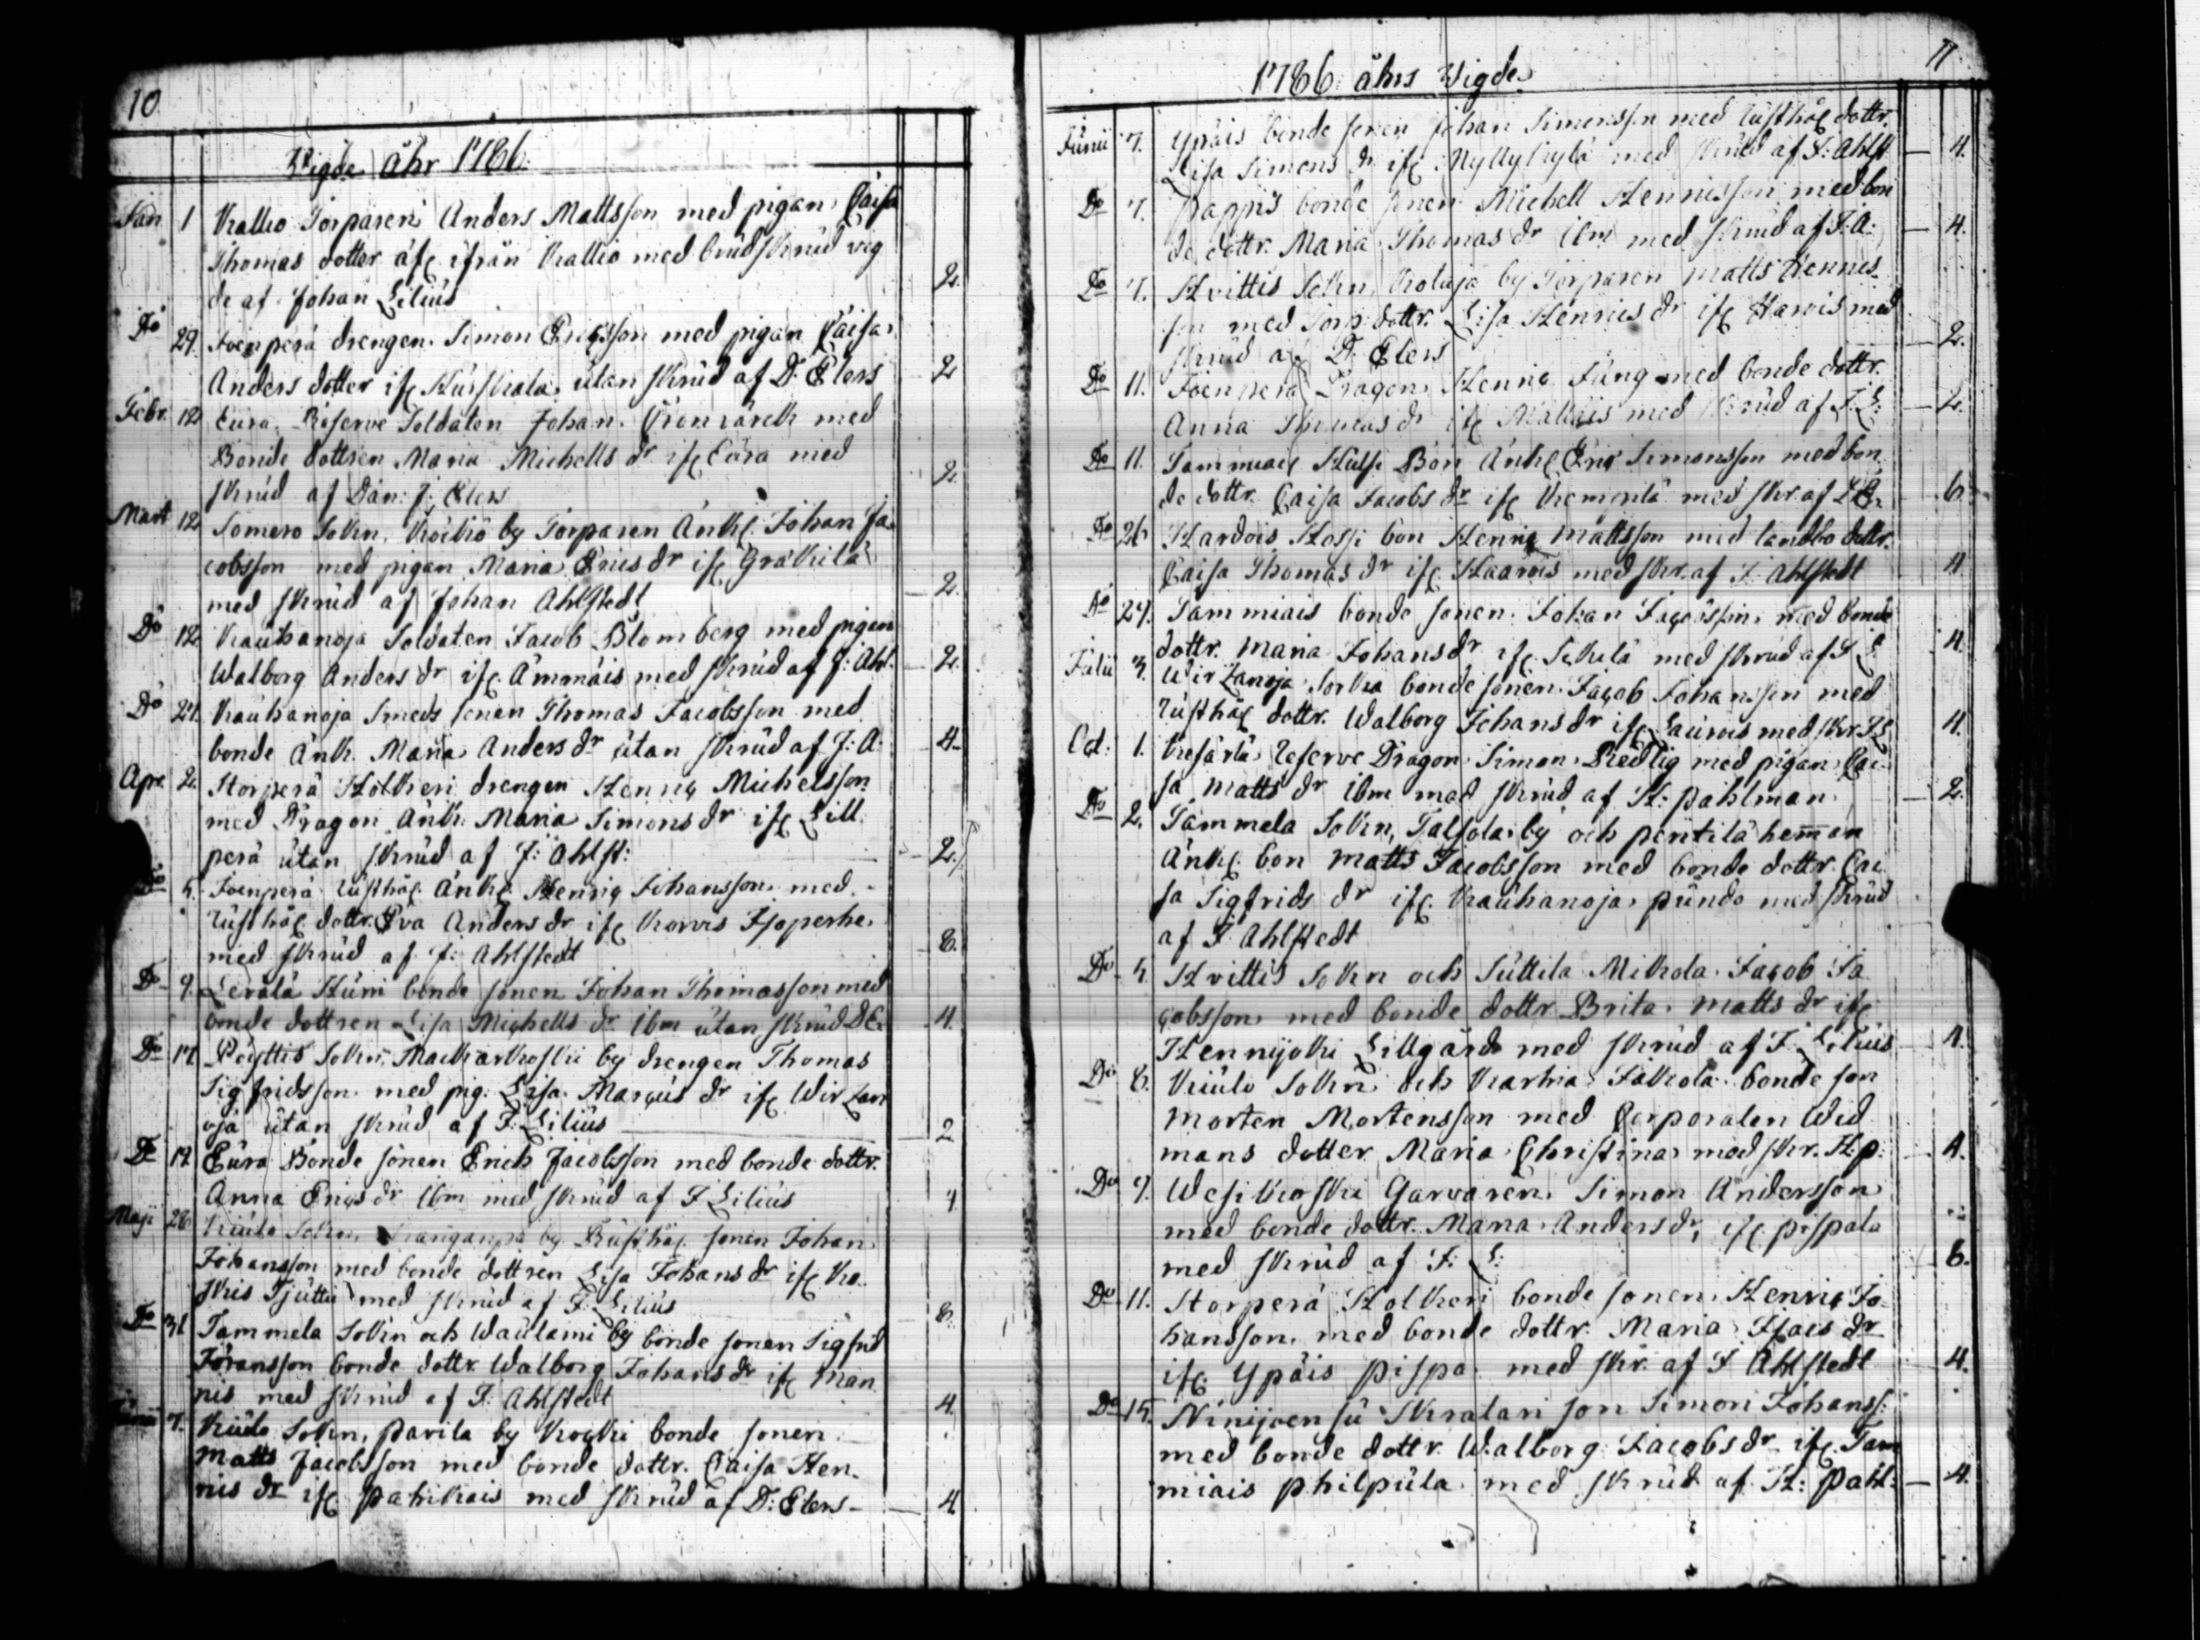 10
Vigde åhr 1786.
Jan 1 Kallio Torparen Anders Mattsson med pigan Caisa
Thomas dotter äfc ifrån Kallio med brudskrud vig
de af Johan Lilius 2.
Do 29. Joenperä drengen Simon Ericsson med pigan Caisa
Anders dotter ifc Kurskala utan skrud af D. Elers 2
Febr. 12 Eura Reserve Soldaten Johan med
Bonde dottren Maria Michells dr ifc Eura med
skrud af Dan: J: Elers 2
Mart 12 Somero Sokn, Koikio by Torparen Änkl. Johan Ja
cobsson med pigan Maria Erics dr ifc Gräkilä
med skrud af Johan Ahlstedt 2.
Do 12 Kauhanoja Soldaten Jacob Blomberg med pigan
Walborg Anders dr ifc Ämmäis med skrud af J: Ahl. 2.
Do 27. Kauhanoja Smeds sonen Thomas Jacobsson med
bonde Änk. Maria Anders dr utan skrud af J: A: 4
Apr. 2. Storperä Holkeri drengen Henric Michelsson
med Dragon Änk: Maria Simons dr ifc Lill
perä utan skrud af J: Ahlst: 2.
Do 4. Joenperä rusthåc Änkl Henric Johansson med
rusthåc dottr. Eva Anders dr ifc Korvis Isoperhe
med skrud af J: Ahlstedt 8.
Do 9. Leralä Huni bonde sonen Johan Thomasson med
bonde dottren Lisa Michells dr Ibm utan skrud DE. 4.
Do 17. Pöyttis Sokn, Mackarkoski by drengen Thomas
Sigfridsson med pig. Lisa Marcus dr ifc Wirzan
oja utan skrud af J: Lilius 2
Do 17. Eura Bonde sonen Erich Jacobsson med bonde dottr.
Anna Erics dr Ibm med skrud af J Lilius 4
Maji 28. Kiulo Sokn, by Rusthåc sonen Johan
Johansson med bonde dottren Lisa Johans dr ifc Ko
skis Tjuttu med skrud af J. Lilius 8.
Do 31 Tammela Sokn och Waulami by bonde sonen Sigfrid
Jöransson bonde dottr Walborg Johans dr ifc Man
nis med skrud af J: Ahlstedt 4.
Junii 7. Kiulo Sokn, pavila by Kocki bonde sonen
Matts Jacobsson med bonde dottr. Caisa Hen
rics dr ifc pahikais med skrud af D: Elers 4
11.
1786 åhrs Vigde.
Junii 7. Ypäis bonde sonen Johan Simonsson med rusthåc dottr.
Lisa Simons dr ifc Myllykylä med skrud af J: Ahlst 4.
Do 7. pappis bonde sonen Michell Henricsson med bon
de dottr. Maria Thomas dr Ibm med skrud af J: A: 4.
Do 7. Hvittis Sokn, by Torparen Matts Henrics
son med Torp: dottr. Lisa Henrics dr ifc Harois med
skrud af D. Elers 2.
Do 11. Joenperä Dragon Henric Jung med bonde dottr.
Anna Thomas dr ifc med skrud af J. L: 2.
Do 11. Tammiais Hulsi Bon Änkl Eric Simonsson med bon
de dottr. Caisa Jacobs dr ifc Kempilä med skr. af D E. 6.
Do 26 Hardois Hossi bon Henric Mattsson med landbo dottr.
Caisa Thomas dr ifc Haarois med skr. af J. Ahlstedt 4
Do 29. Tammiais bonde sonen Johan Jacobsson med bonde
dottr. Maria Johans dr ifc med skrud af J L: 4.
Julii 3. Wirzanoja Sorkka bonde sonen Jacob Johansson med
rusthåc dottr. Walborg Johans dr ifc Laurois med skr. J L 4.
Oct: 1. Kesärlä reserve Dragon Simon Redlig med pigan Cai
sa Matts dr Ibm med skrud af H: pahlman 2.
Do 2. Tammela Sokn, Talsola by och pentilä heman
Änkl. bon Matts Jacobsson med bonde dottr. Cai
sa Sigfrids dr ifc. Kauhanoja pundo med skrud
af J Ahlstedt
Do 4. Hvittis Sokn och Suttila Mikola Jacob Ja
cobsson med bonde dottr Brita Matts dr ifc
Hennijoki Lillgård med skrud af J Lilius 4.
Do 8. Kiulo Sokn och Karhia Jakola bonde son
Morten Mortensson med Corporalen Wid
mans dotter Maria Christina med skr. H. p: 4.
Do 9. Wesikoski Garvaren Simon Andersson
med bonde dottr. Maria Anders dr, ifc pispala
med skrud af J: L: 6.
Do 11. Storperä Holkeri bonde sonen Henric Jo
hansson med bonde dottr. Maria Isacs dr
ifc Ypäis pispa med skr. af J Ahlstedt 4.
Do 15. Ninijoensu Skratari son Simon Johanss:
med bonde dottr. Walborg Jacobs dr ifc. Tam
miais philpula med skrud af H: pahl: 4.